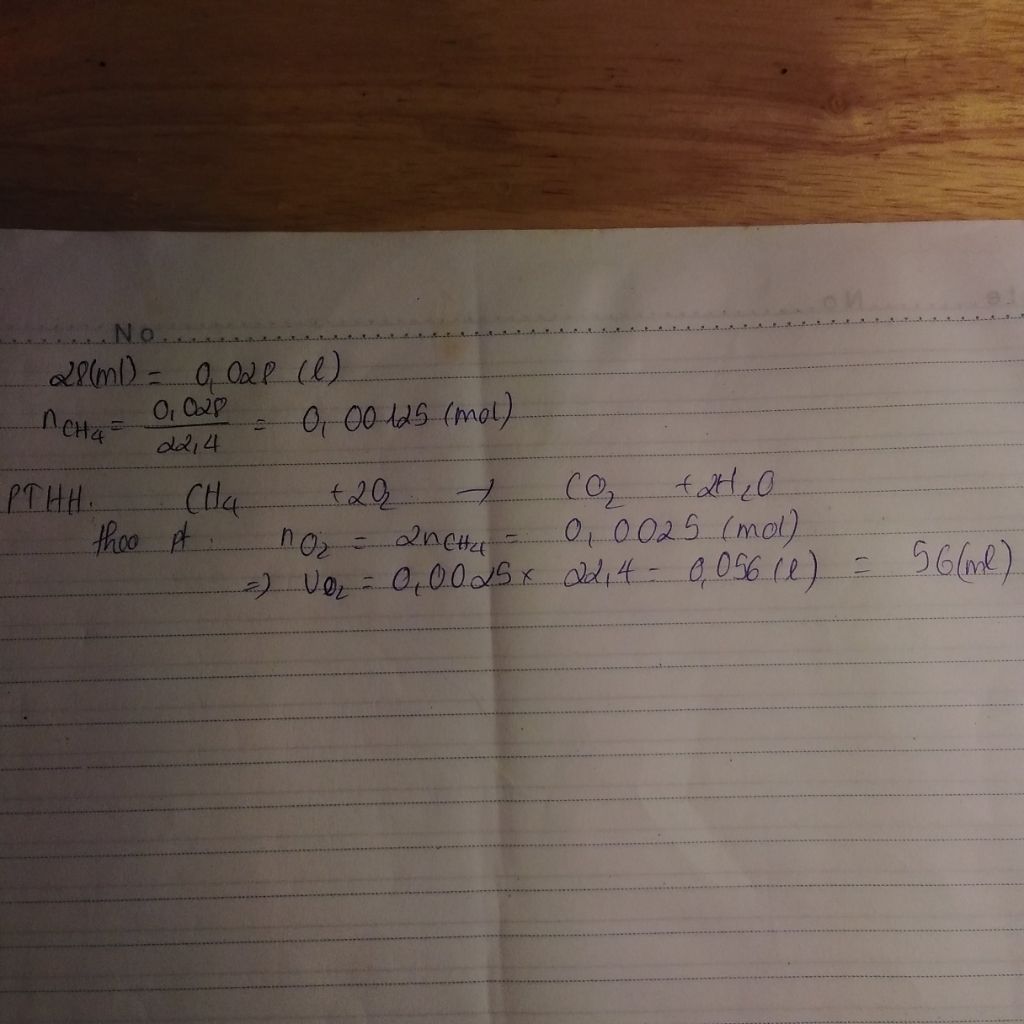 No
28(ml) = 0,028 (l)
nCH4 = 0,028/22,4 = 0,00125 (mol)
PTHH. CH4 +2O2 → CO2 +2H2O
theo pt : nO2 = 2nCH4 = 0,0025 (mol)
=> VO2 = 0,0025 x 22,4 = 0,056 (l) = 56(ml)